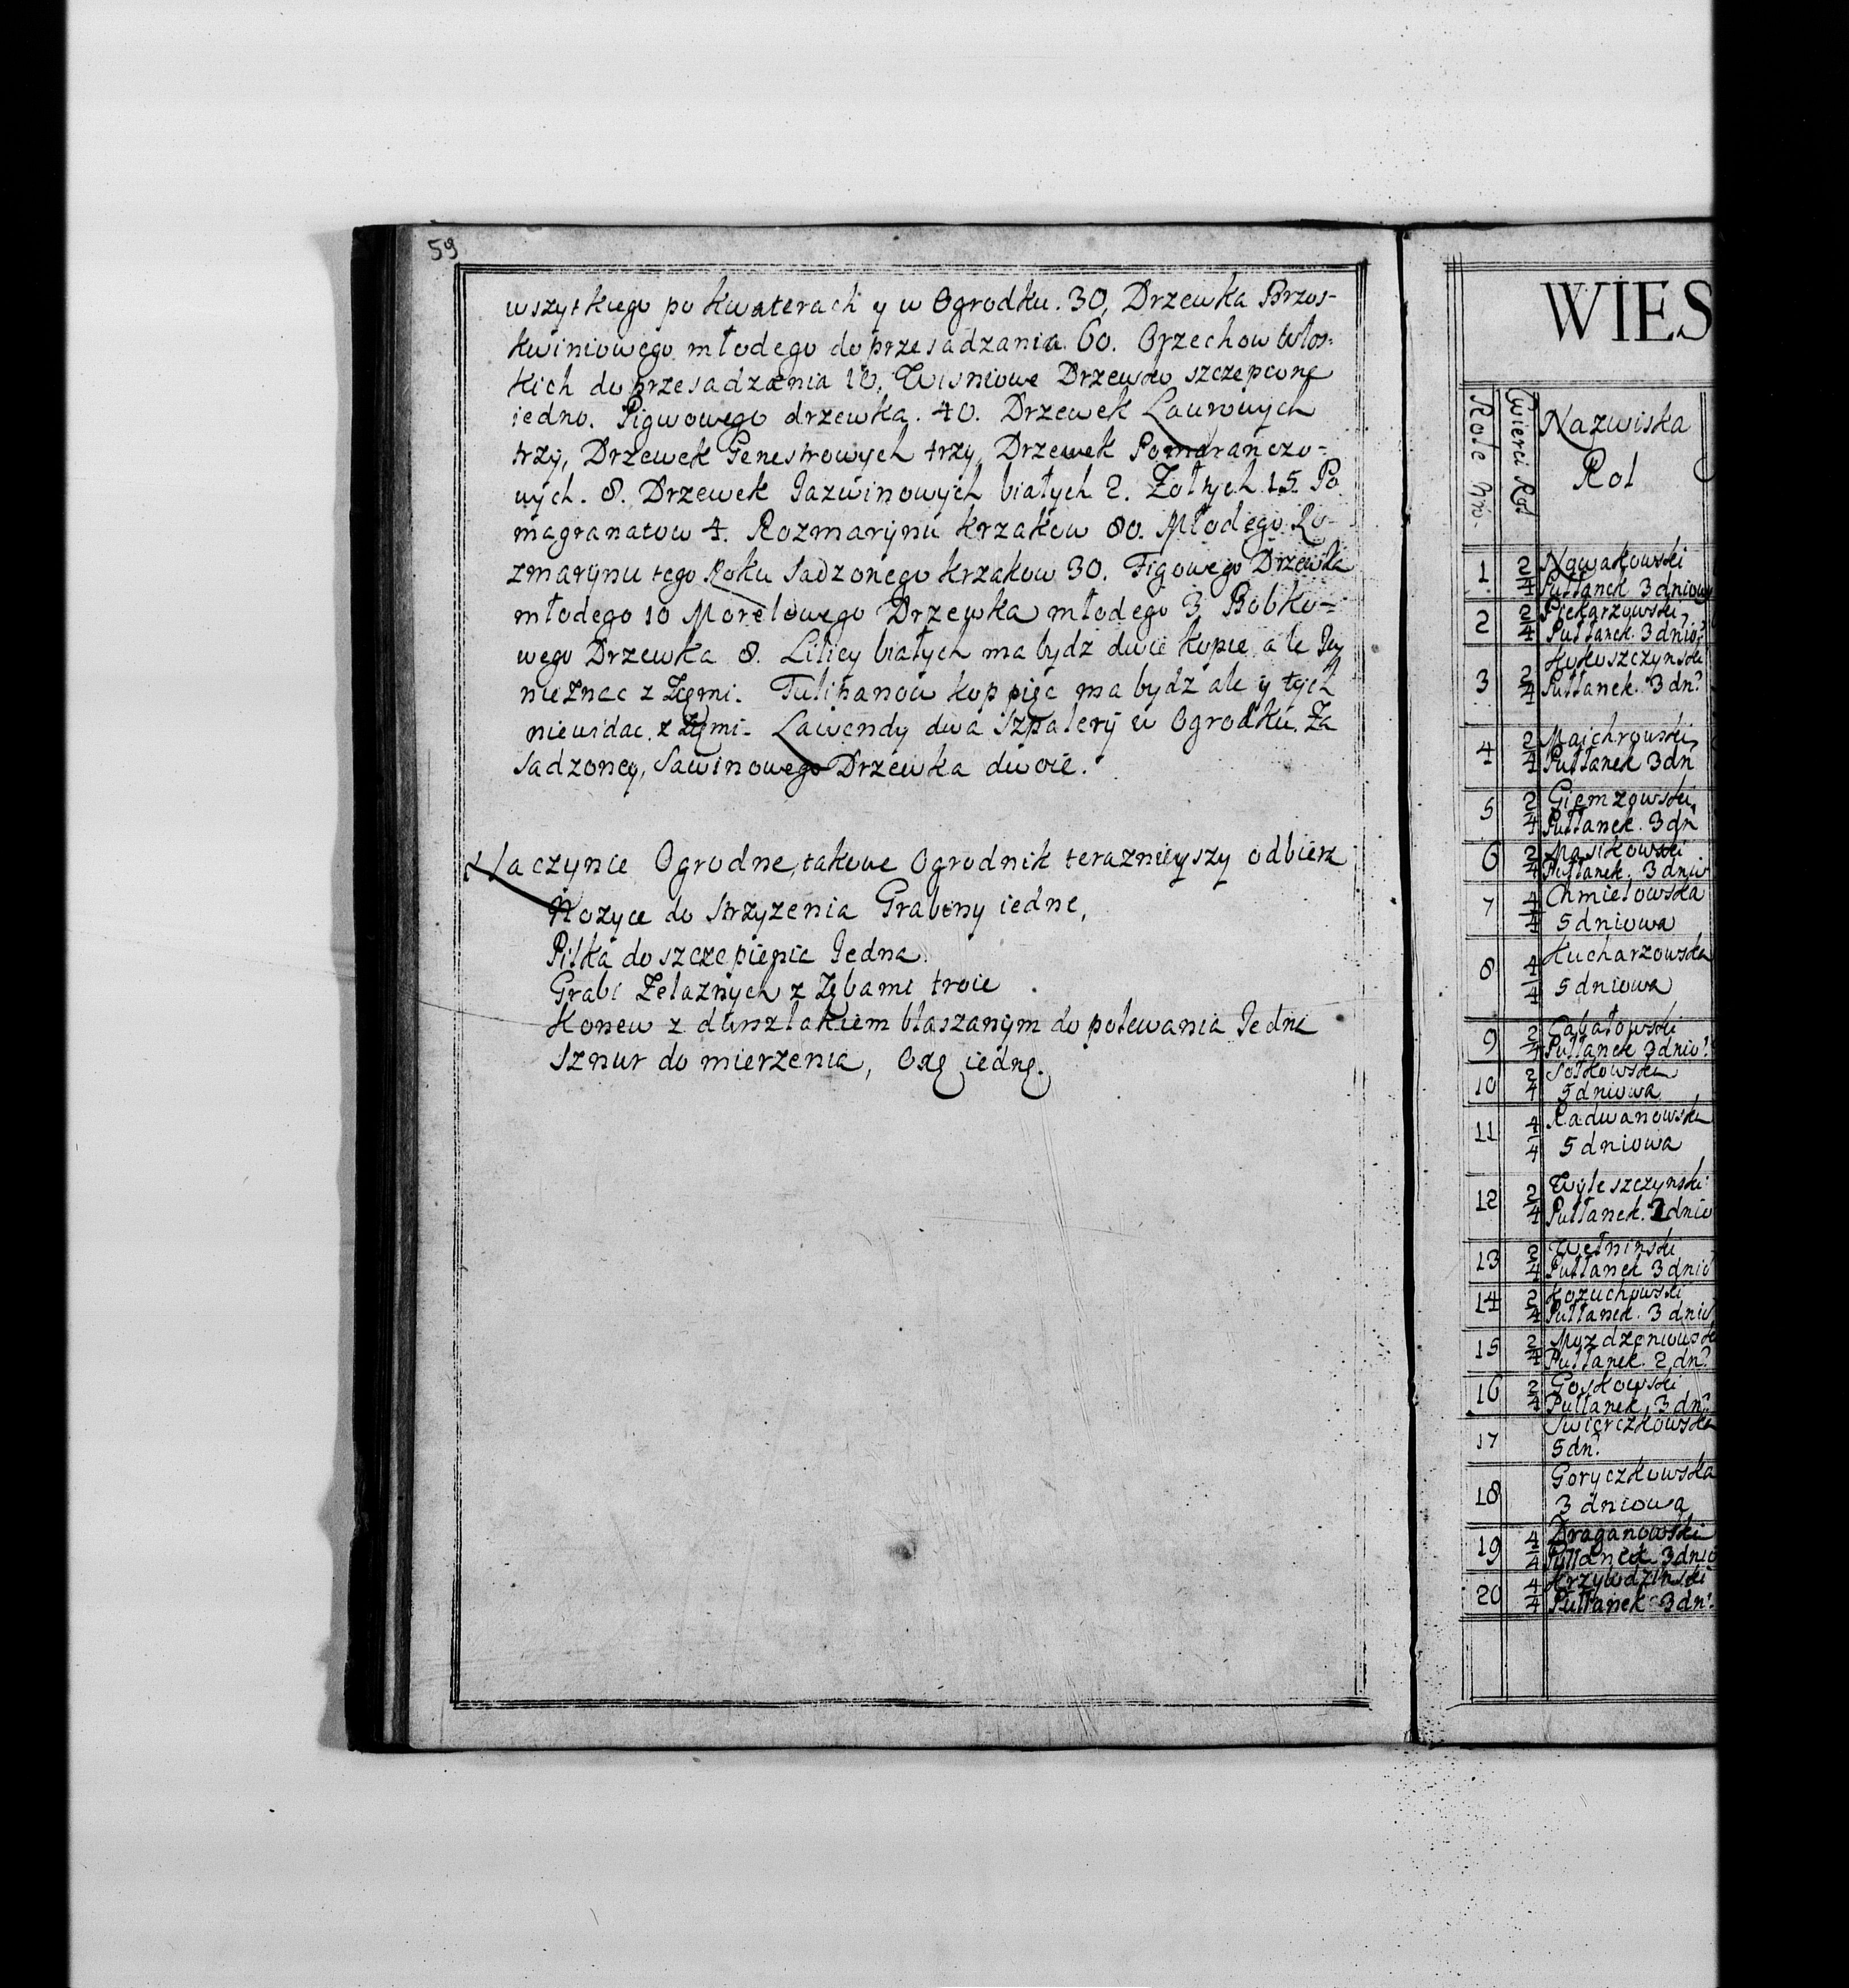 59
wszytkiego po kwaterach y w Ogrodku. 30, Drzewka Brzos-
kwiniowego młodego do przesadzania 60. Orzechow Włos-
kich do przesadzania 10, Wisniowe Drzewko szczepione
iedno. Pigwowego drzewka. 40. Drzewek Laurowych
trzy, Drzewek Genestrowych trzy, Drzewek Pomarańczo-
wych. 8. Drzewek Jazwinowych białych 2. Żołtych 15. Po
magranatow 4. Rozmarynu krzakow 80. Młodego Ro-
zmarynu tego Roku Sadzonego krzakow 30. Figowego Drzewka
młodego 10 Morelowego Drzewka młodego 3 Bobko-
wego Drzewka 8. Liliey białych ma bydź dwie kopie ale Jey
nieznac z Ziemi. Tulipanow kop pięc ma bydź ale y tych
niewidac z Ziemi. Lawendy dwa Szpalery w Ogrodku Za
sadzoney, Sawinowego Drzewka dwoie.
Naczynie Ogrodne, takowe Ogrodnik teraznieyszy odbierze
Nozyce do strzyzenia Grabiny iedne,
Piłka do szczepienie Jedna
Grabi Zelaznych z Zębami troie
Konew z durszlakiem blaszanym do polewania Jedne
Sznur do mierzenia, Oxę iednę.
WIES
Role Nro.
Cwierci Rol
Nazwiska
Rol
1 2/4 Nowakowski
Pułłanek 3 dniowy
2 2/4 Piekarzowski,
Pułłanek. 3 dnio?
3 2/4 Kukuszczynski
Pułłanek. 3 dn?
4 2/4 Maichrowski,
Pułłanek 3 dn
5 2/4 Giemzowski,
Pułłanek. 3 dn
6 2/4 Masikowski
Pułłanek. 3 dnio
7 4/4 Chmielowska
5 dniowa
8 4/4 Kucharzowska
5 dniowa
9 2/4 Gabałowski
Pułłanek 3 dnio?
10 2/4 Sołkowska
5 dniowa
11 4/4 Radwanowska
5 dniowa
12 2/4 Wyleszczynski
Pułłanek. 2 dnio
13 2/4 Wełninski
Pułłanek 3 dnio
14 2/4 Kozuchowski
Pułłanek. 3 dnio
15 2/4 Mozdzeniowski
Pułłanek. 2 dn?
16 2/4 Goskowski
Pułłanek, 3 dn?
17 Swierczkowska
5 dn?
18 Goryczkowska
3 dniowa
19 4/4 Draganowski
Pułłanek 3 dnio
20 4/4 Krzywdzinski
Pułłanek 3 dn?